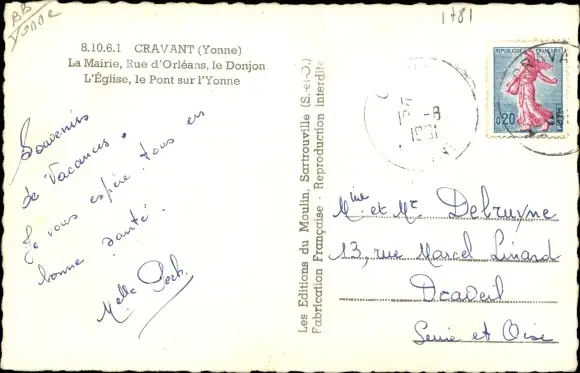 BB
Yonne
1781
8.10.6.1 CRAVANT (Yonne)
La Mairie, Rue d'Orléans, le Donjon
L'Église, le Pont sur l'Yonne
Souvenirs
de Vacances.
Je vous espère tous en
bonne santé.
Melle
Les Editions du Moulin, Sartrouville (S.-et-O.)
Fabrication Française - Reproduction interdite
REPUBLIQUE FRANÇAISE
0,20
POSTES
CRAVA
-8
1961
Mme et Mr Delruyne
13, rue Marcel Linard
Draveil
Seine et Oise